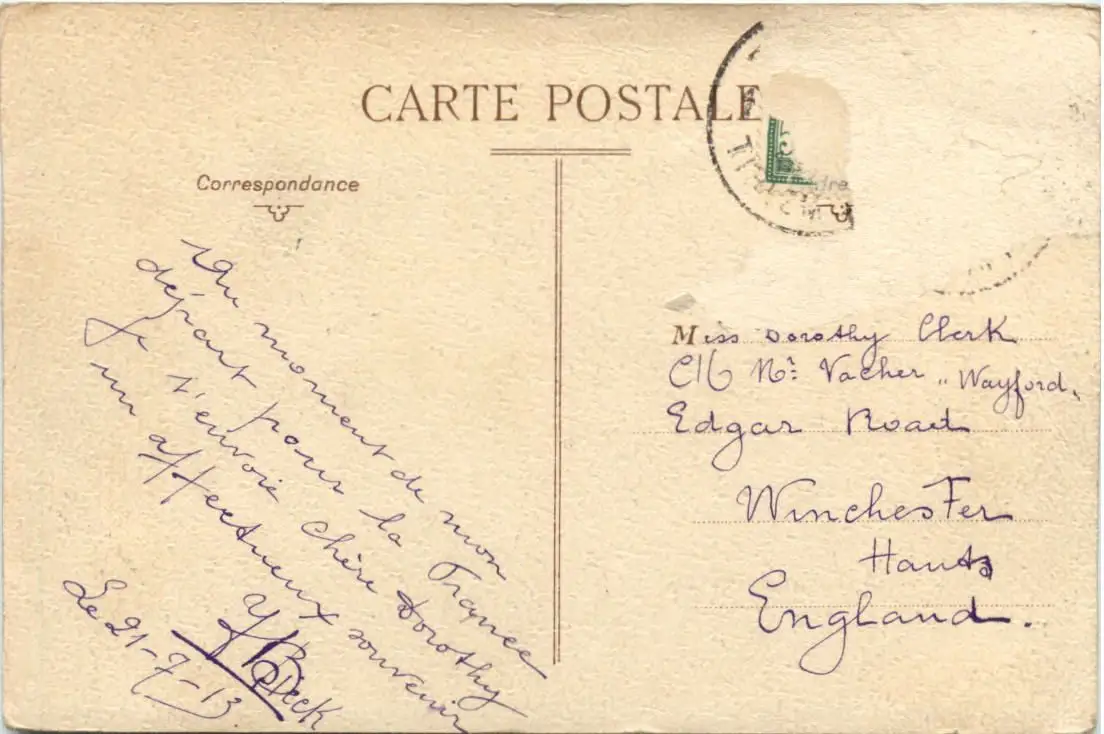 CARTE POSTALE
Correspondance
Au moment de mon
départ pour la France
Je t'envoie chère Dorothy
un affectueux souvenir
Le 21-7-13
5
dre
Miss Dorothy Clerk
Vacher „Wayford„
Edgar Road
Winchester
Hants
England.